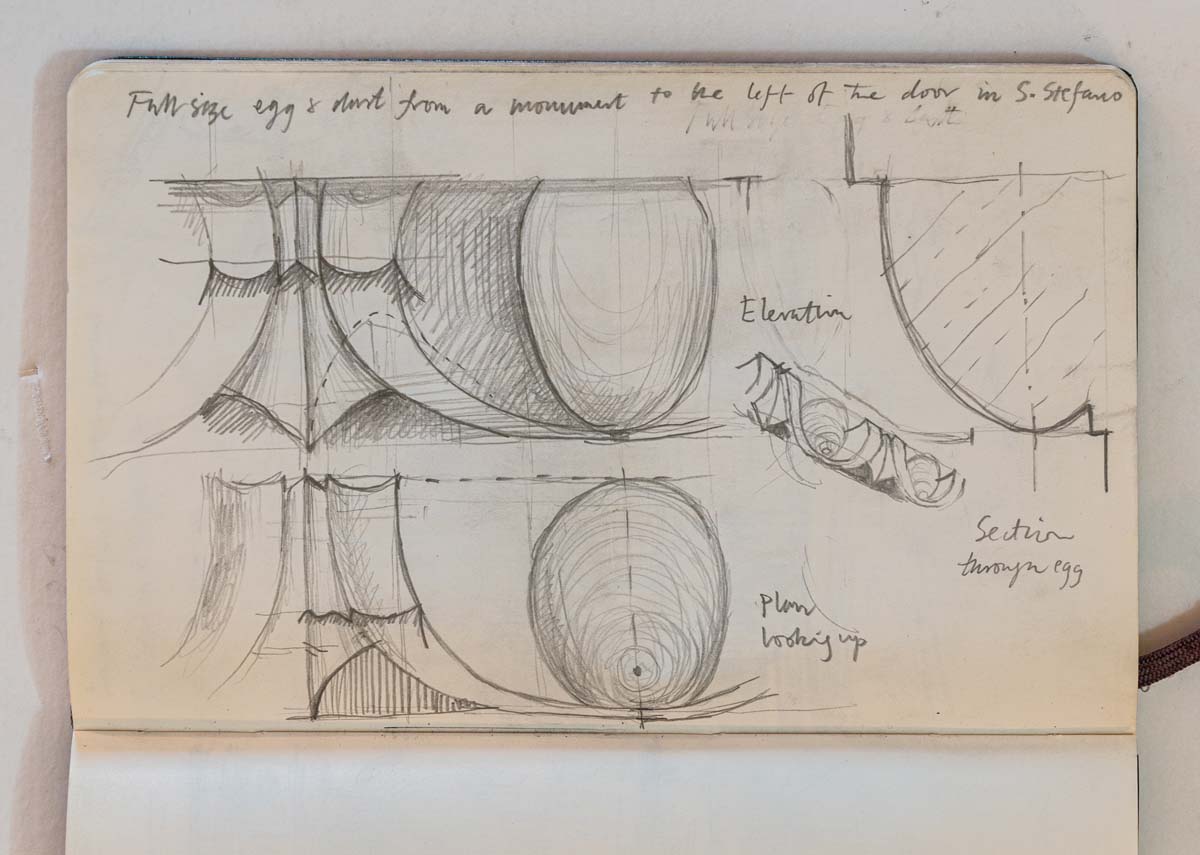 Full size egg & dart from a monument to the left of the door in S. Stefano
Full size egg & dart
Elevation
Section
through egg
Plan
looking up